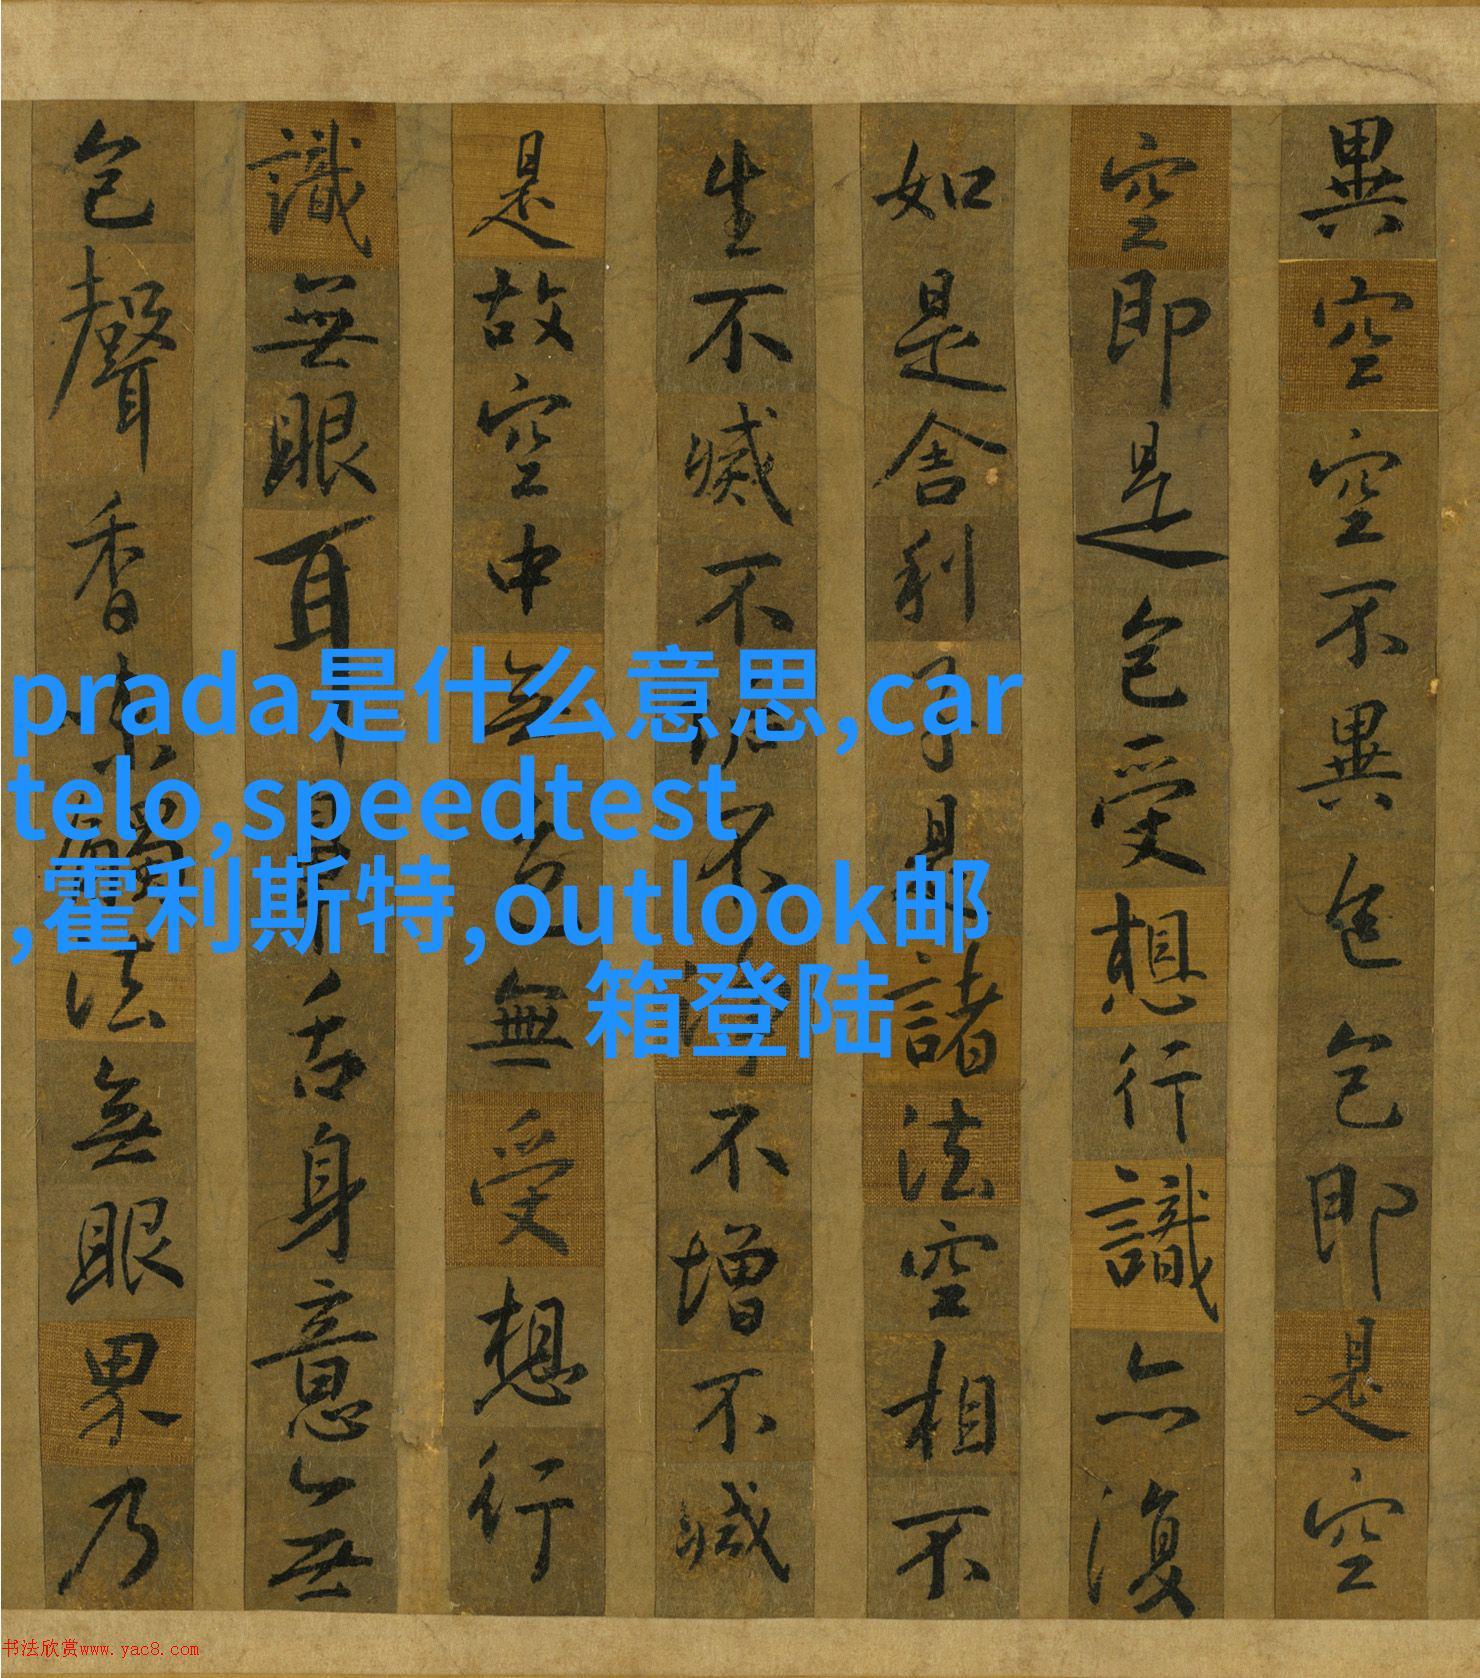 異空空不異色色即是空
空即是色受想行識亦復
如是舍利子是諸法空相不
生不滅不垢不淨不增不減
是故空中無色無受想行
識無眼耳鼻舌身意無
色聲香味觸法無眼界乃
prada是什么意思,car
telo,speedtest
,霍利斯特,outlook邮
箱登陆
书法欣赏www.yac8.com